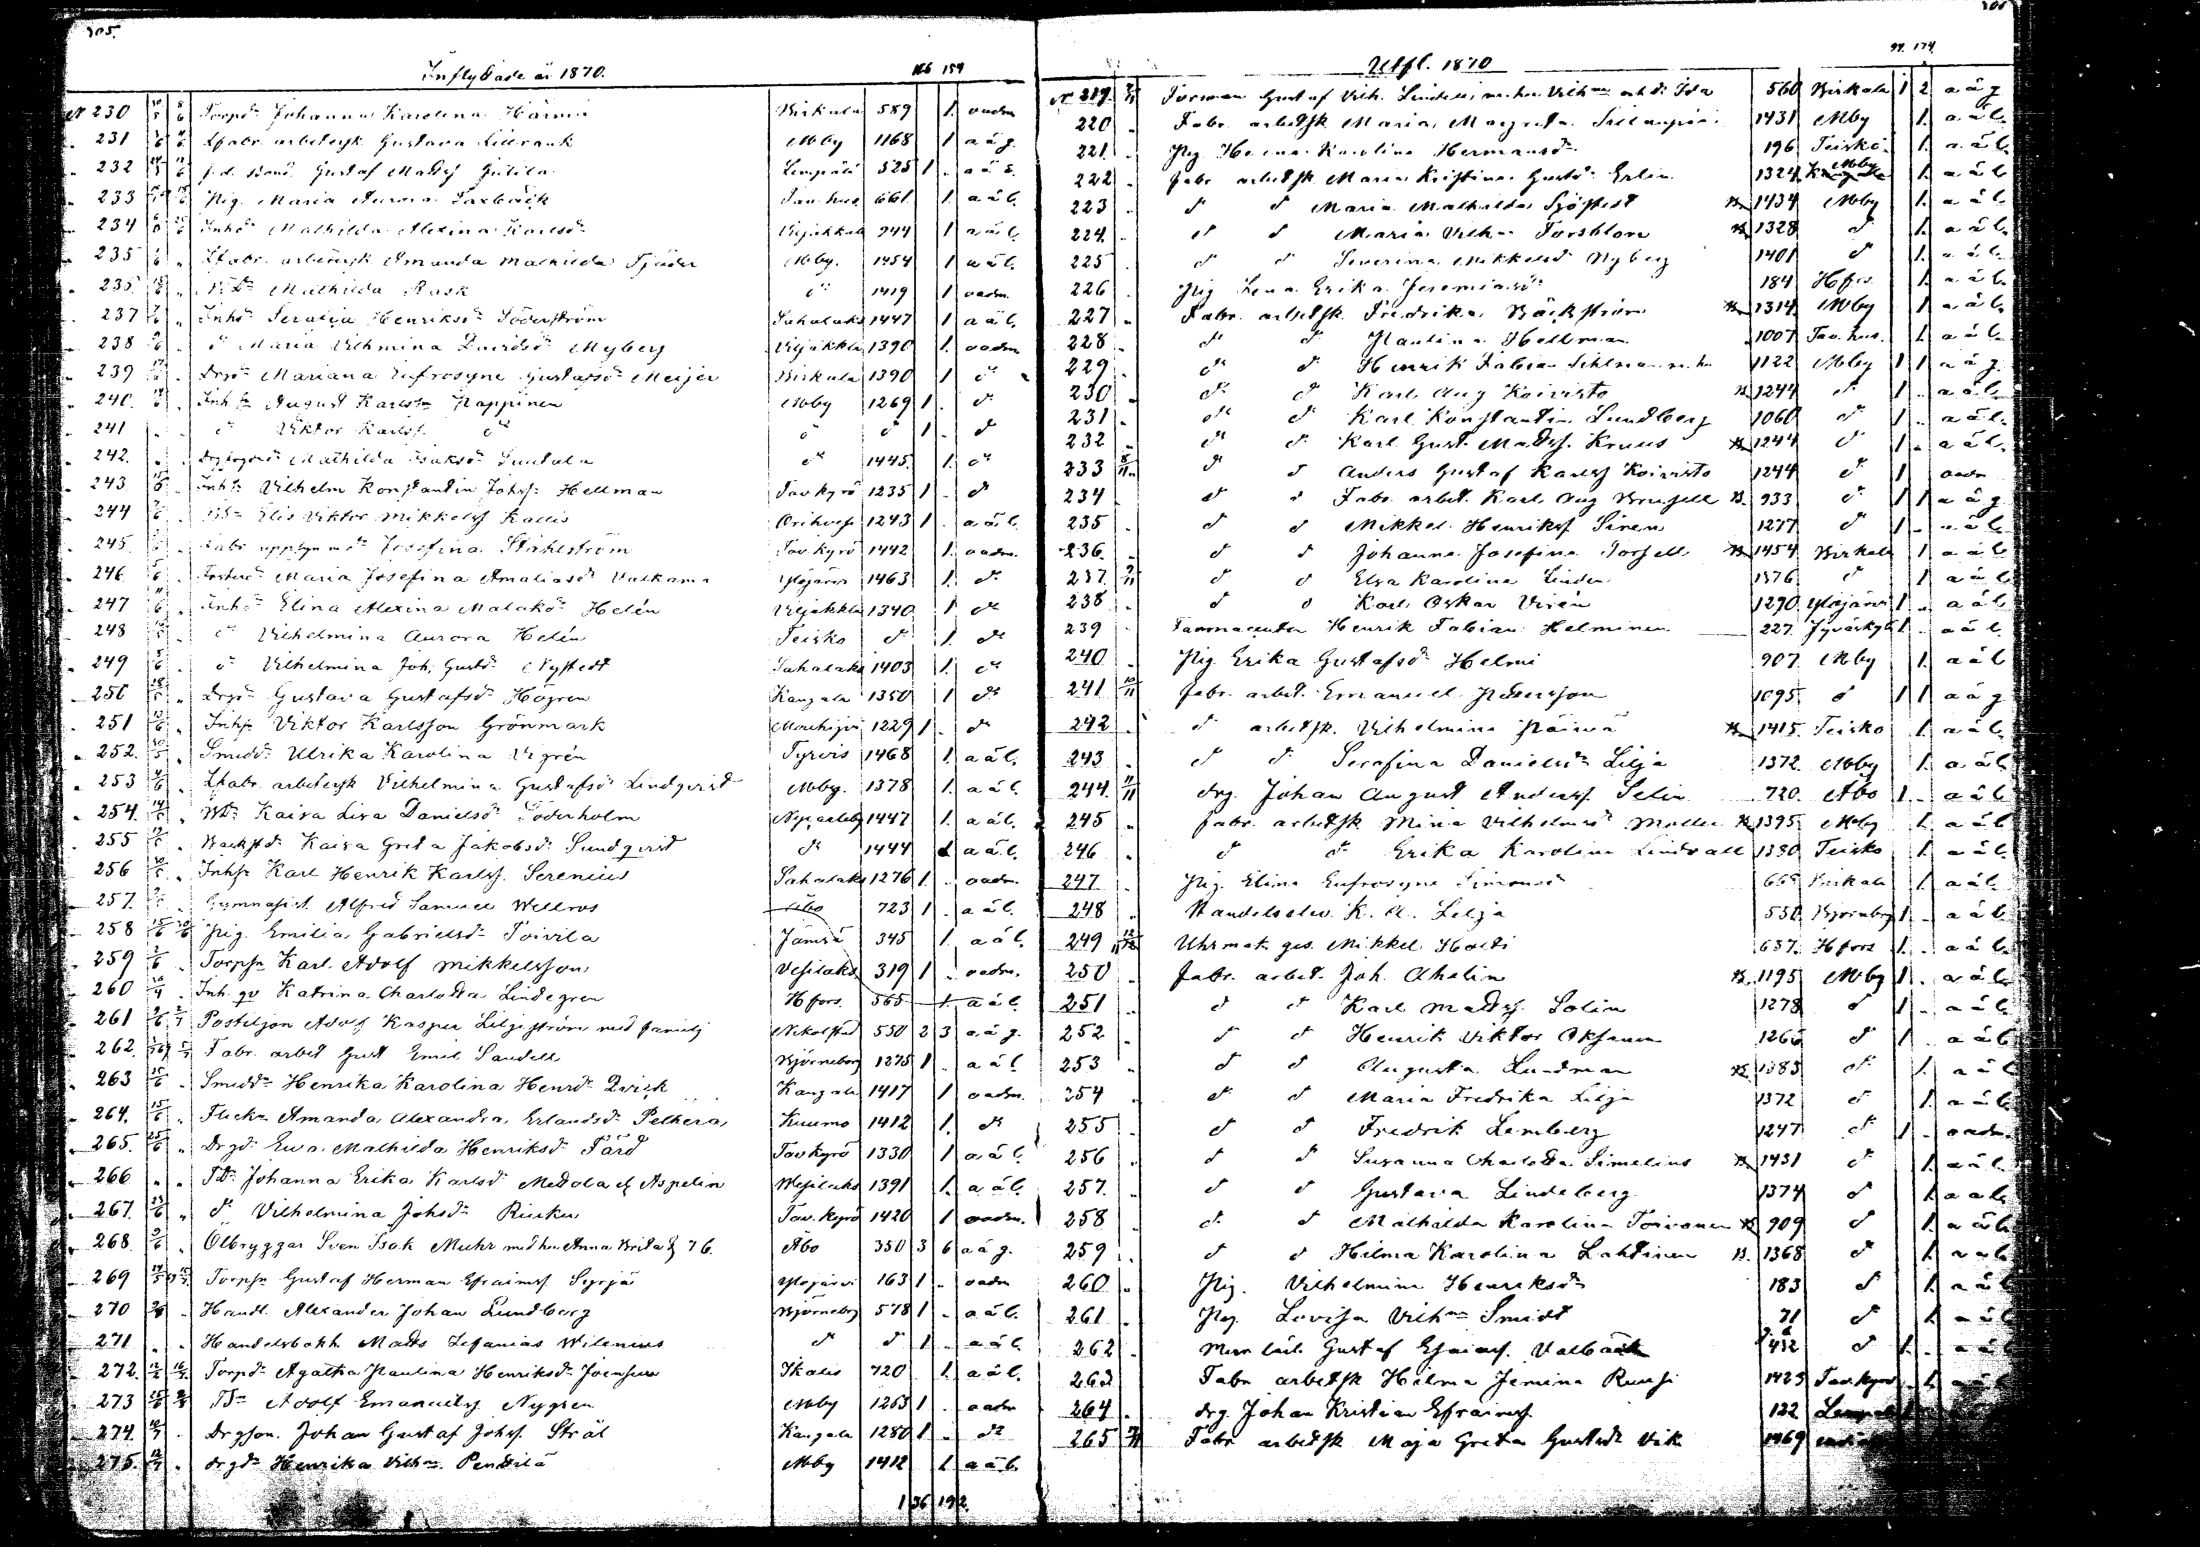 305.
Inflyttade år 1870. 166 159
N 230 Torpd. Johanna Karolina Birkala 589 1. oadm
231 Lfabr. arbetersk Gustava Lillrank Mby 1168 1 a ä g.
232 f.d. bond. Gustaf Matts Lempälä 525 1 . a ä l.
233 Pig. Maria Aurora Saxbäck Tav.hus 661 1. a ä l.
234 Inhd. Mathilda Alexina Karlsd. Viljakkala 944 1 a ä l.
235 Lfabr. arbetersk Amanda Mathilda Tjäder Mby. 1454 1 a ä l.
235 Mathilda Rask d:o 1419 1 oadm.
237 Inhd. Serafia Henriksd. Söderström Sahalaks 1447 1 a ä l.
238 d:o Maria Vilhmina Davidsd. Nyberg Viljakkla 1390 1. oadm
239 Drgd. Mariana Eufrosyne Gustafsd. Meijer Birkala 1390 1 d:o
240. Inhs. August Karlss. Pappinen Mby 1269 1 . d:o
241 d:o Viktor Karlss. d:o d:o d:o 1 . d:o
242. Mathilda Isaksd. Suntala d:o 1445. 1. d:o
243 Inhs. Vilhelm Konstantin Johss. Hellman Tavkyrö 1235 1 . d:o
244 Elis Viktor Mikkelss. Kallis Orihvesi 1243 1 . a ä l.
245. Josefina Ståhlström Tav.kyrö 1442 1. oadm.
246 Maria Josefina Amaliasd. Valkama Ylöjärvi 1463 1. d:o
247 Inhd. Elina Alexina Malaksd. Helén Viljakkla 1340. 1 d:o
248 d:o Vilhelmina Aurora Helén Teisko d:o 1. d:o
249 d:o Vilhelmina Joh. Gustd. Nystedt Sahalaks 1403 1. d:o
250 Drgd. Gustava Gustafsd. Högren Kangala 1350 1 d:o
251 Inhs. Viktor Karlsson Grönmark Mouhijvi 1229 1 . d:o
252. Smedd. Ulrika Karolina Vigrén Tyrvis 1468 1. a ä l.
253 Lfabr. arbetersk Vilhelmina Gustafsd. Lindqvist Mby. 1378 1. a ä l.
254. Kaisa Lisa Danielsd. Söderholm Nycarleby 1447 1. a ä l.
255 Backstd. Kaisa Greta Jakobsd. Sundqvist d:o 1444 1 a ä l.
256 Inhs. Karl Henrik Karlss. Serenius Sahalaks 1276 1. . oadm.
257. Gymnasist. Alfred Samuel Wellros Åbo 723 1 . a ä l.
258 Pig. Emilia Gabrielsd. Toivila Jämsä 345 1. a ä l.
259 Torps. Karl Adolf Mikkelsson Vesilaks 319 1 . oadm.
260 Inh. qv Katrina Charlotta Lindegren Hfors. 565 1. a ä l.
261 Postiljon Adolf Kasper Liljeström med familj Nikolstad 550 2 3 a ä g.
262. Fabr. arbet Gust Emil Sandell Björneborg 1275 1 . a ä l.
263 Smedd. Henrika Karolina Henrd. Qvick Kangala 1417 1 oadm.
264. Flickn Amanda Alexandra Erlandsd. Pelkera Kuumo 1412 1. d:o
265. Drgd. Eva Mathilda Henriksd. Färd Tavkyrö 1330 1 a ä l.
266 Johanna Erika Karlsd. Mattola el. Aspelin Wesilaks 1391 1. a ä l.
267. d:o Vilhelmina Johsd. Tav.kyrö 1420 1 oadm.
268. Ölbryggar Sven Isak Muhr med hu Anna Brita & 7 b. Åbo 350 3 6 a ä g.
269 Torps. Gustaf Herman Efraims. Syrjä Ylöjärvi 163 1 . oadm
270 Handl. Alexander Johan Lundberg Björneborg 578 1 . a ä l.
271 Handelsbokh. Matts Zefanias Wilenius d:o d:o 1 . a ä l.
272. Torpd. Agatha Paulina Henriksd. Ikalis 720 1. a ä l.
273 Adolf Emanuels. Nygren Mby 1263 1 . oadm
274. Drgson. Johan Gustaf Johss. Strål Kangala 1280 1 . d:o
275. drgd. Henrika Vilhna. Penttilä Mby 1412 1. a ä l.
136 192.
306
Utfl. 1870 99. 174.
N 219. Forman Gustaf Vilh. Lindelius m. hu Vilhna och d. Ida 560 Birkala 1 2 a ä g
220 Fabr. arbetsk Maria Margreta Sillanpää 1431 Mby 1. a ä l.
221. Pig Helena Karolina Hermansd. 196 Teisko 1. a ä l.
222 Fabr. arbetsk Maria Kristina Gustd. Erlin 1324 Mby 1. a ä l.
223 d:o d:o Maria Mathilda Sjöstedt 1434 Mby 1. a ä l.
224. d:o d:o Maria Vilhna Forsblom 1328 d:o 1. a ä l.
225 d:o d:o Severina Mikkelsd. Nyberg 1401 d:o 1. a ä l.
226 Pig Lena Erika Jeremiasd. 184 Hfrs. 1. a ä l.
227 Fabr. arbetsk. Fredrika Bäckström 1314 Mby 1 a ä l.
228 d:o d:o Paulina Hellman 1007 Tav.hus. 1. a ä l.
229 d:o d:o Henrik Fabian Sihlman m. hu 1122 Mby 1 1 a ä g.
230 d:o d:o Karl Aug Koivisto 1244 d:o 1 . a ä l.
231 d:o d:o Karl Konstantin Lundberg 1060 d:o 1 . a ä l.
232 d:o d:o Karl Gust. Mattss. Kruus 1244 d:o 1 . a ä l.
233 d:o d:o Anders Gustaf Karlss Koivisto 1244 d:o 1 oadm
234 d:o d:o Fabr. arbet. Karl Aug Brusell 933 d:o 1 1 a ä g
235 d:o d:o Mikkel Henrikss. Siren 1277 d:o 1 . a ä l.
236. d:o d:o Johanna Josefina Forsell 1454 Birkala 1 a ä l.
237. d:o d:o Elsa Karolina Linden 1376 d:o 1 a ä l.
238 d:o d:o Karl Oskar Virén 1290 Ylöjärvi 1 . a ä l.
239 Henrik Fabian Helminen 227. Jyväskylä 1 . a ä l.
240 Pig Erika Gustafsd. Helmi 907. Mby 1. a ä l
241 fabr. arbet. Emanuel Pettersson 1095. d:o 1 1 a ä g
242 d:o arbetsk. Vilhelmina Päivä 1415. Teisko 1. a ä l.
243 d:o d:o Serafina Danielsd. Lilja 1372 Mby 1. a ä l.
244. drg. Johan August Anderss. Selin 720. Åbo 1 . a ä l.
245 fabr. arbetsk Mina Vilhelmsd. Møller 1395 Mby 1. a ä l
246 d:o d:o Erika Karolina Lindvall 1380 Teisko 1. a ä l.
247 Pig. Elina Eufrosyne Simonsd. 665 Birkala 1. a ä l.
248 Handelselev. K. A. Lilja 550 Björnborg 1 . a ä l.
249 Uhrmak. ges. Mikkel Holti 637. Hfors 1. . a ä l.
250 fabr. arbet. Joh. Ahslin 1195 Mby 1 . a ä l.
251 d:o d:o Karl Mattss. Solin 1278 d:o 1 . a ä l.
252 d:o d:o Henrik Viktor Oksanen 1266 d:o 1 . a ä l
253 d:o d:o Augusta Lundman 1383 d:o 1. a ä l
254 d:o d:o Maria Fredrika Lilja 1372 d:o 1. a ä l.
255 d:o d:o Fredrik Lemberg 1247 d:o 1 . oadm.
256 d:o d:o Susanna Charlotta Simelius 1431 d:o 1. a ä l.
257. d:o d:o Gustava Lindeberg 1374 d:o 1. a ä l.
258 d:o d:o Mathilda Karolina Toivonen 909 d:o 1. a ä l.
259 d:o d:o Hilma Karolina Lahtinen 1368 d:o 1. a ä l.
260. Pig. Vilhelmina Henriksd. 183 d:o 1. a ä l.
261 Pig. Lovisa Vilhna Smidt 71 d:o 1. a ä l
262 Gustaf Efraims. Valbäck 432 d:o 1. a ä l
263 Fabr arbetsk Hilma Jemina Ruusi 1423 Tav.kyrö 1. a ä l
264 drg. Johan Kristian Efraimss. 122
265 Fabr. arbetsk Maja Greta Gustsd. Vik 1469